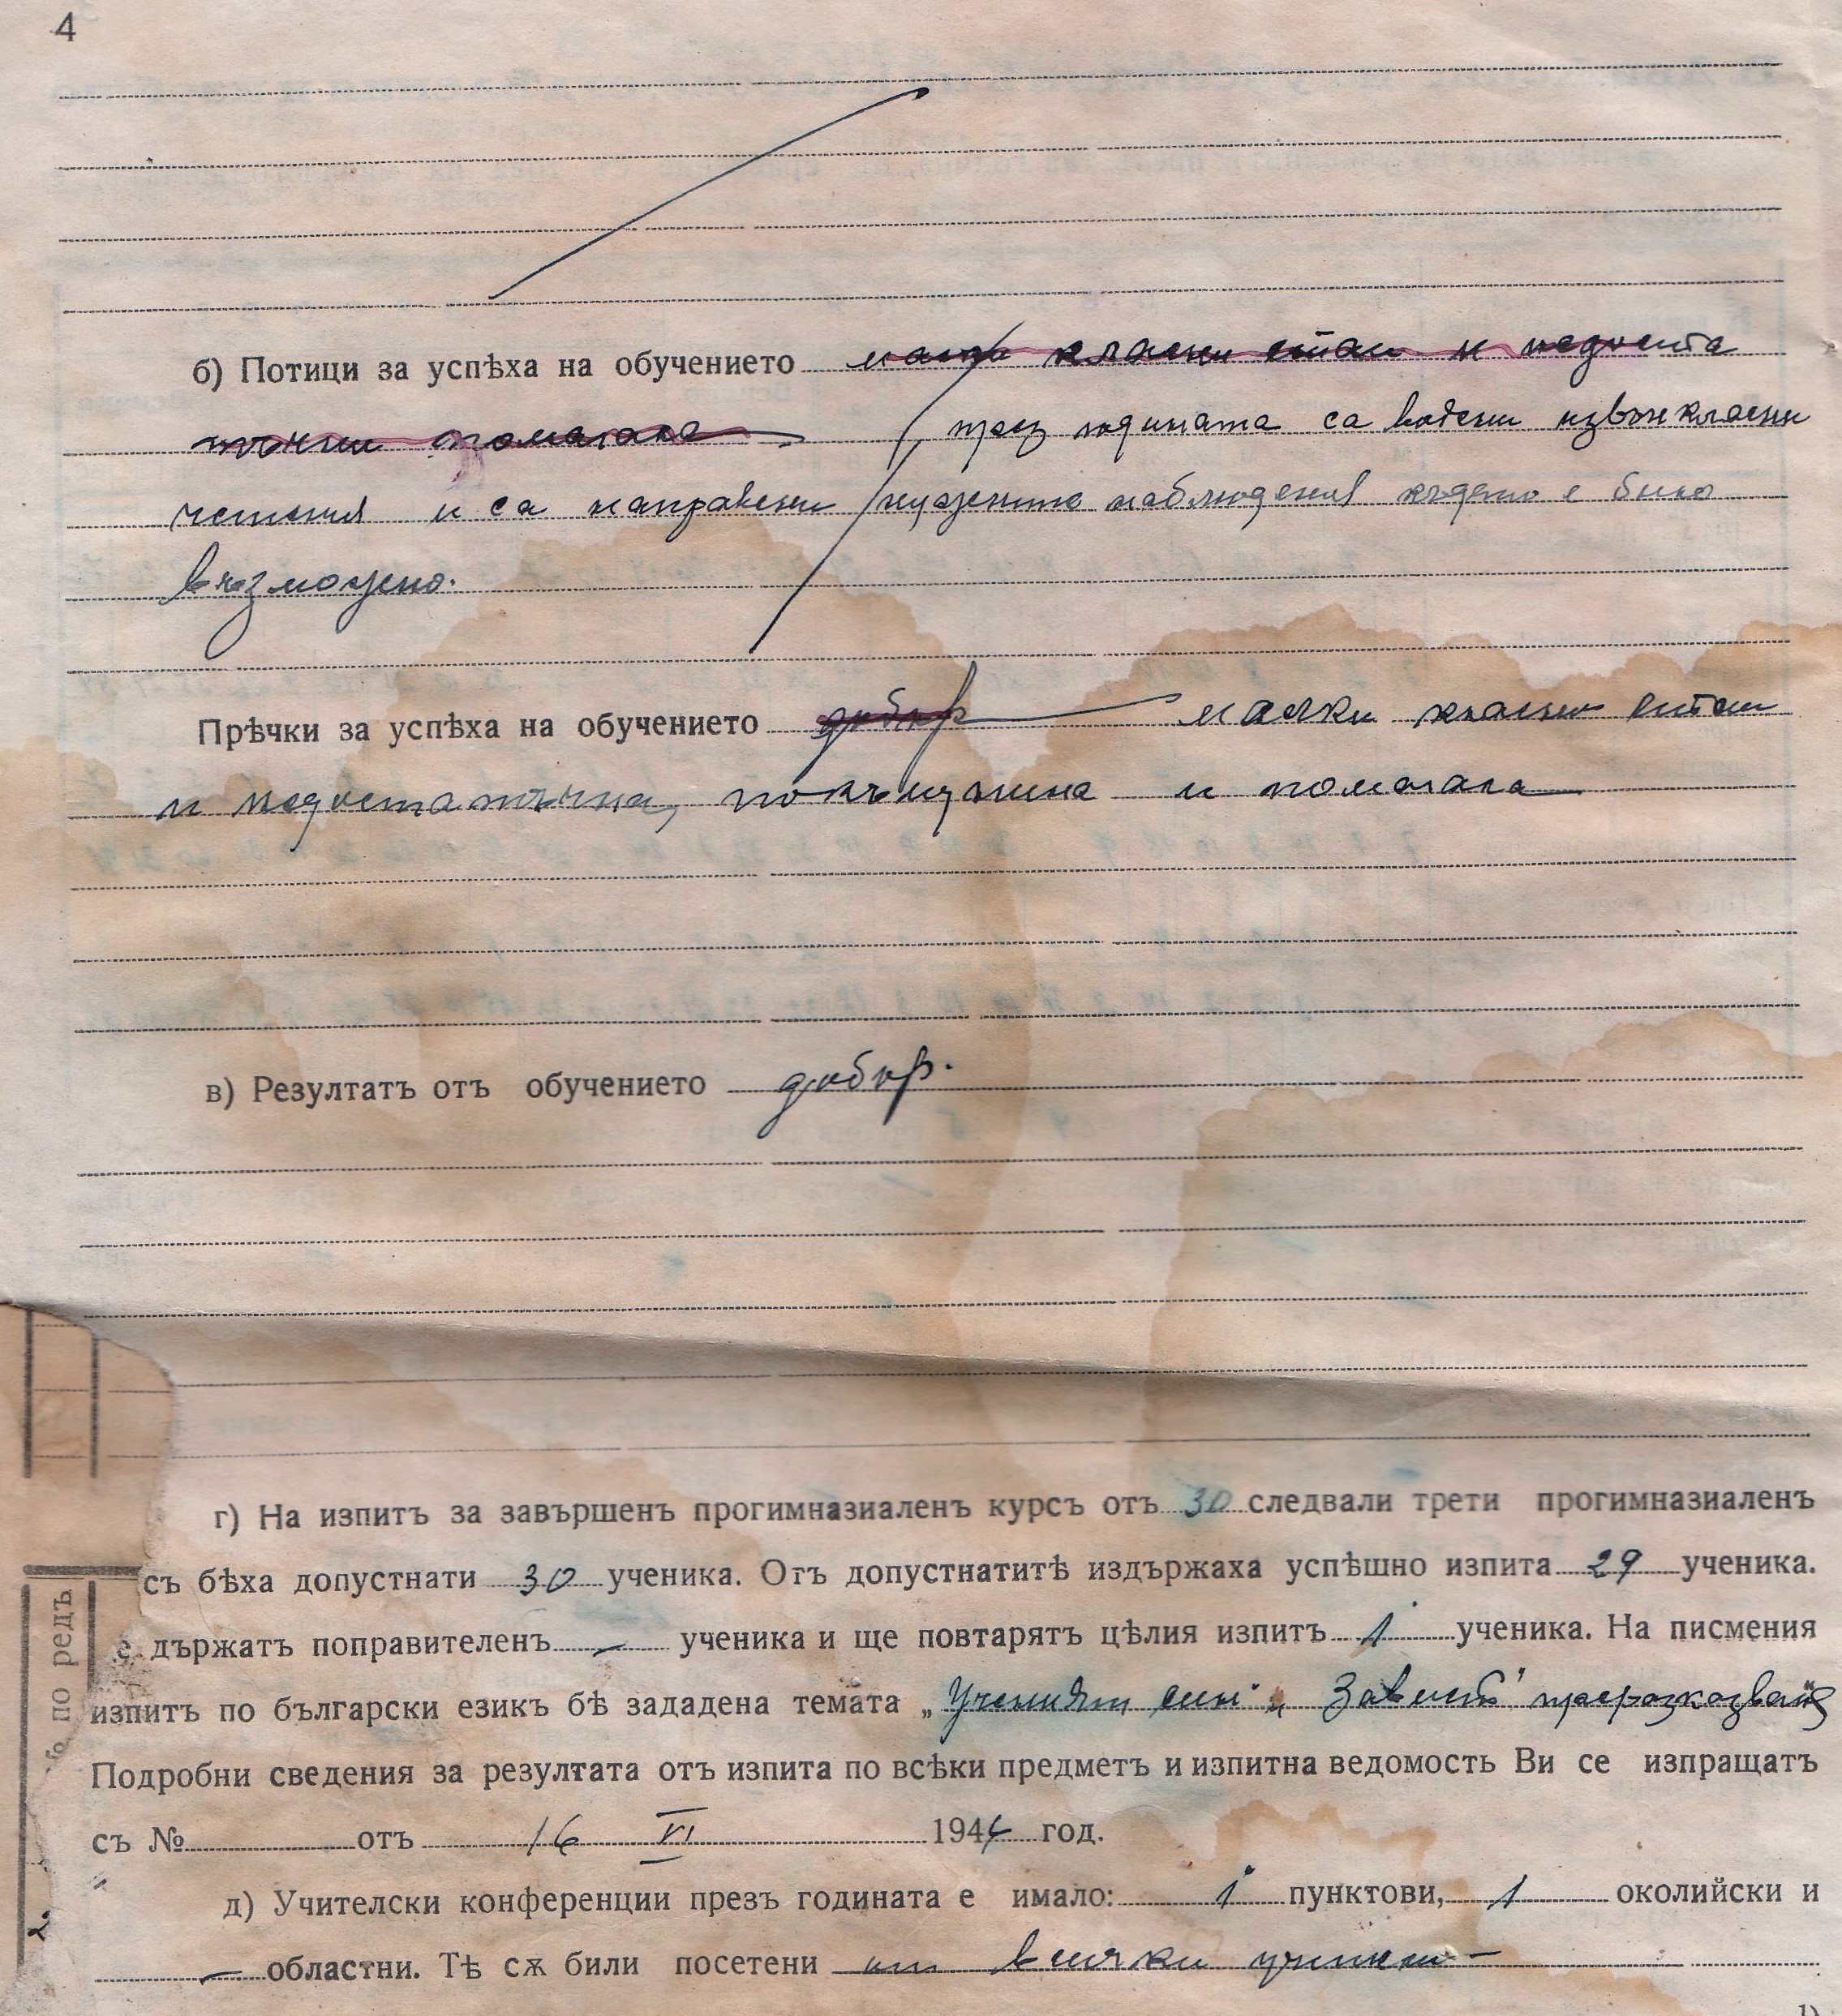 4
б) Потици за успѣха на обучението малки класни стаи и недоста
тъчни помагала през годината са водени извънкласни
четения и са направени нуждните наблюдения където е било
възможно.
Прѣчки за успѣха на обучението добър малки класни стаи
и недостатъчна покъщнина и помагала
в) Резултатъ отъ обучението добър.
г) На изпитъ за завършенъ прогимназиаленъ курсъ отъ 30 следвали трети прогимназиаленъ
съ бѣха допустнати 30 ученика. Отъ допустнатитѣ издържаха успѣшно изпита 29 ученика.
е държатъ поправителенъ — ученика и ще повтарятъ цѣлия изпитъ 1 ученика. На писмения
изпитъ по български езикъ бѣ зададена темата „Учениятъ син" и Завист"
Подробни сведения за резултата отъ изпита по всѣки предметъ и изпитна ведомость Ви се изпращатъ
съ № отъ 16 VI 1944 год.
д) Учителски конференции презъ годината е имало: 1 пунктови, 1 околийски и
— областни. Тѣ сѫ били посетени от всички
по редъ
2.